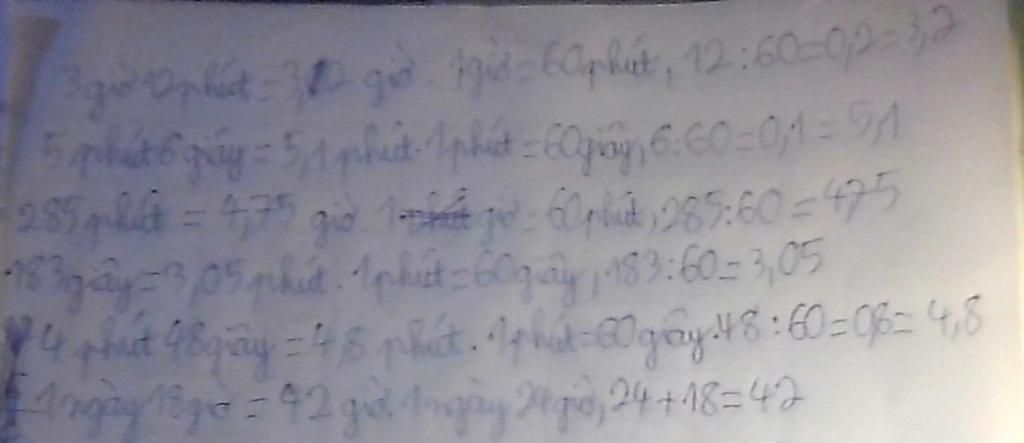 3 giờ 12 phút = 3,2 giờ. 1 giờ = 60 phút, 12 : 60 = 0,2 = 3,2
5 phút 6 giây = 5,1 phút. 1 phút = 60 giây, 6 : 60 = 0,1 = 5,1
285 phút = 4,75 giờ. 1 giờ = 60 phút, 285 : 60 = 475
183 giây = 3,05 phút. 1 phút = 60 giây, 183 : 60 = 3,05
4 phút 48 giây = 4,8 phút. 1 phút = 60 giây. 48 : 60 = 0,8 = 4,8
1 ngày 18 giờ = 42 giờ. 1 ngày 24 giờ, 24 + 18 = 42